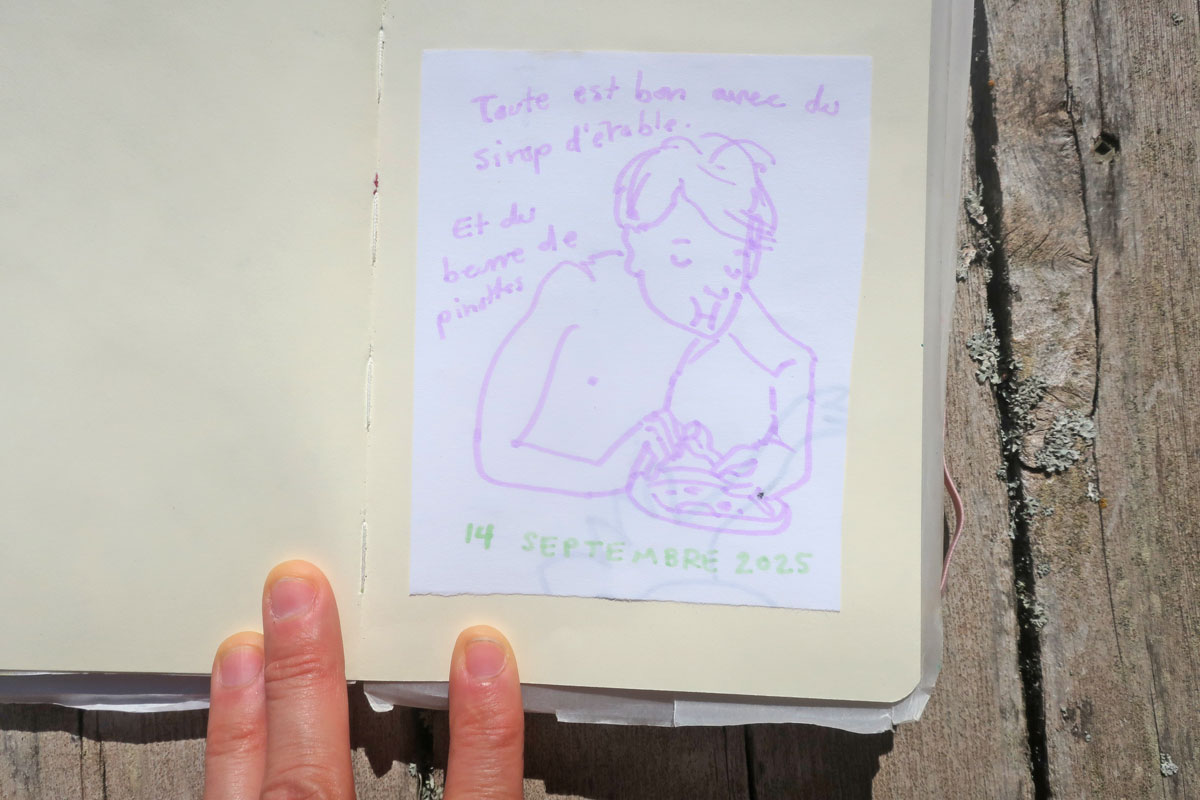 Toute est bon avec du
sirop d'érable.
Et du
beurre de
pinottes
14 SEPTEMBRE 2025